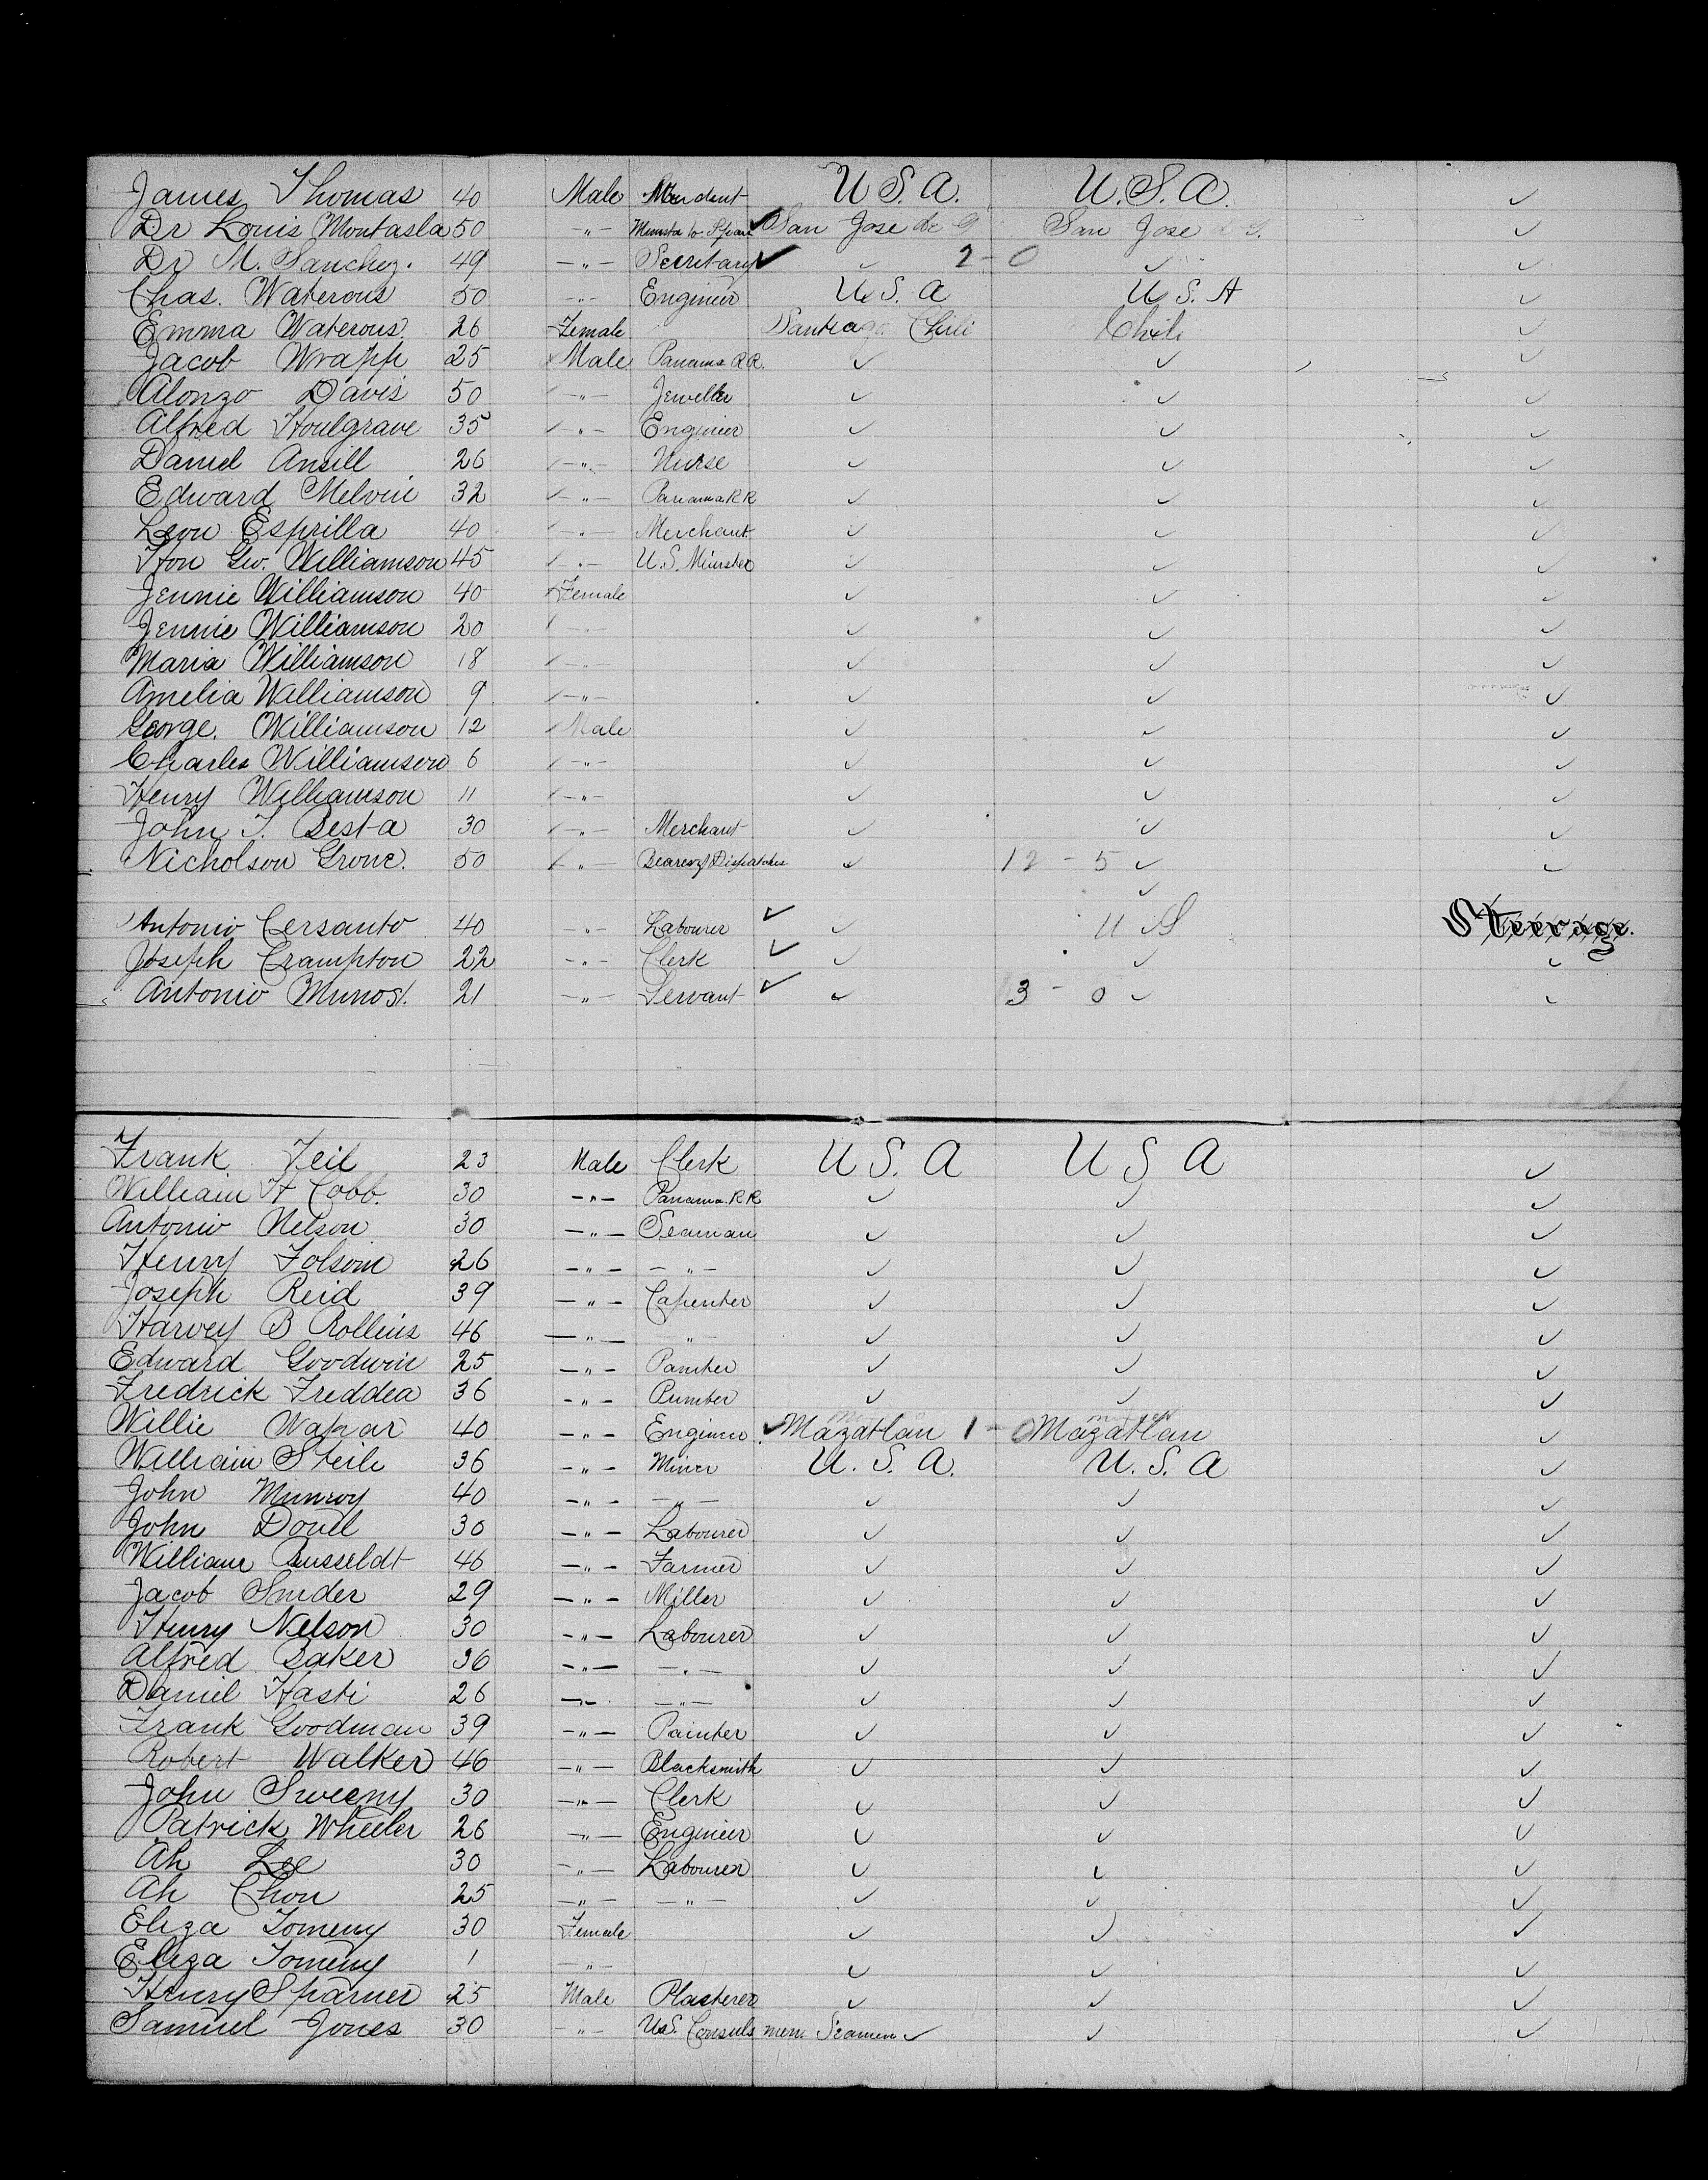 James Thomas 40 Male U.S.A. U.S.A. ✓
Dr Louis Montasla 50 -"- ✓ San Jose de G San Jose de G. ✓
Dr M. Sanchez. 49 -"- Secretary ✓ ✓ 2-0 ✓ ✓
Chas. Waterous 50 -"- Engineer U.S.A U.S.A ✓
Emma Waterous 26 Female Santiago Chili Chili ✓
Jacob Wrapp 25 Male Panama R.R. ✓ ✓ ✓
Alonzo Davis 50 -"- Jeweller ✓ ✓ ✓
Alfred Houlgrave 35 -"- Engineer ✓ ✓ ✓
Daniel Ansill 26 -"- Nurse ✓ ✓ ✓
Edward Melvin 32 -"- Panama R R ✓ ✓ ✓
Leon Esprilla 40 -"- Merchant ✓ ✓ ✓
Hon Geo. Williamson 45 -"- U.S. Minister ✓ ✓ ✓
Jennie Williamson 40 Female ✓ ✓ ✓
Jennie Williamson 20 -"- ✓ ✓ ✓
Maria Williamson 18 -"- ✓ ✓ ✓
Amelia Williamson 9 -"- ✓ ✓ ✓
George. Williamson 12 Male ✓ ✓ ✓
Charles Williamson 6 -"- ✓ ✓ ✓
Henry Williamson 11 -"- ✓ ✓ ✓
John T. Besta 30 -"- Merchant ✓ ✓ ✓
Nicholson Grone. 50 -"- Bearer of Dispatches ✓ 12-5 ✓ ✓
✓
Antonio Cersanto 40 -"- Labourer ✓ ✓ U S Steerage.
Joseph Crampton 22 -"- Clerk ✓ ✓ ✓ ✓
Antonio Munos. 21 -"- Servant ✓ ✓ 3-0 ✓ ✓
Frank Feil 23 Male Clerk U S. A U S A ✓
William H Cobb. 30 -"- Panama. R R ✓ ✓ ✓
Antonio Nelson 30 -"- Seaman ✓ ✓ ✓
Henry Folsom 26 -"- -"- ✓ ✓ ✓
Joseph Reid 39 -"- Capenter ✓ ✓ ✓
Harvey B Rollins 46 -"- -"- ✓ ✓ ✓
Edward Goodwin 25 -"- Painter ✓ ✓ ✓
Fredrick Freddea 36 -"- Pumber ✓ ✓ ✓
Willie Wapar 40 -"- Engineer ✓ Mazatlan 1-0 Mazatlan ✓
William Steile 36 -"- Miner U. S. A. U. S. A ✓
John Munroy 40 -"- -"- ✓ ✓ ✓
John Douel 30 -"- Labourer ✓ ✓ ✓
William Busseldt 46 -"- Farmer ✓ ✓ ✓
Jacob Snider 29 -"- Miller ✓ ✓ ✓
Henry Nelson 30 -"- Labourer ✓ ✓ ✓
Alfred Baker 36 -"- -"- ✓ ✓ ✓
Daniel Hasti 26 -"- -"- ✓ ✓ ✓
Frank Goodman 39 -"- Painter ✓ ✓ ✓
Robert Walker 46 -"- Blacksmith ✓ ✓ ✓
John Sweeny 30 -"- Clerk ✓ ✓ ✓
Patrick Wheeler 26 -"- Engineer ✓ ✓ ✓
Ah Lee 30 -"- Labourer ✓ ✓ ✓
Ah Chou 25 -"- -"- ✓ ✓ ✓
Eliza Tomeny 30 Female ✓ ✓ ✓
Eliza Tomeny 1 -"- ✓ ✓ ✓
Henry Sparner 25 Male Plasterer ✓ ✓ ✓
Samuel Jones 30 -"- U.S. Consuls men Seamen ✓ ✓ ✓